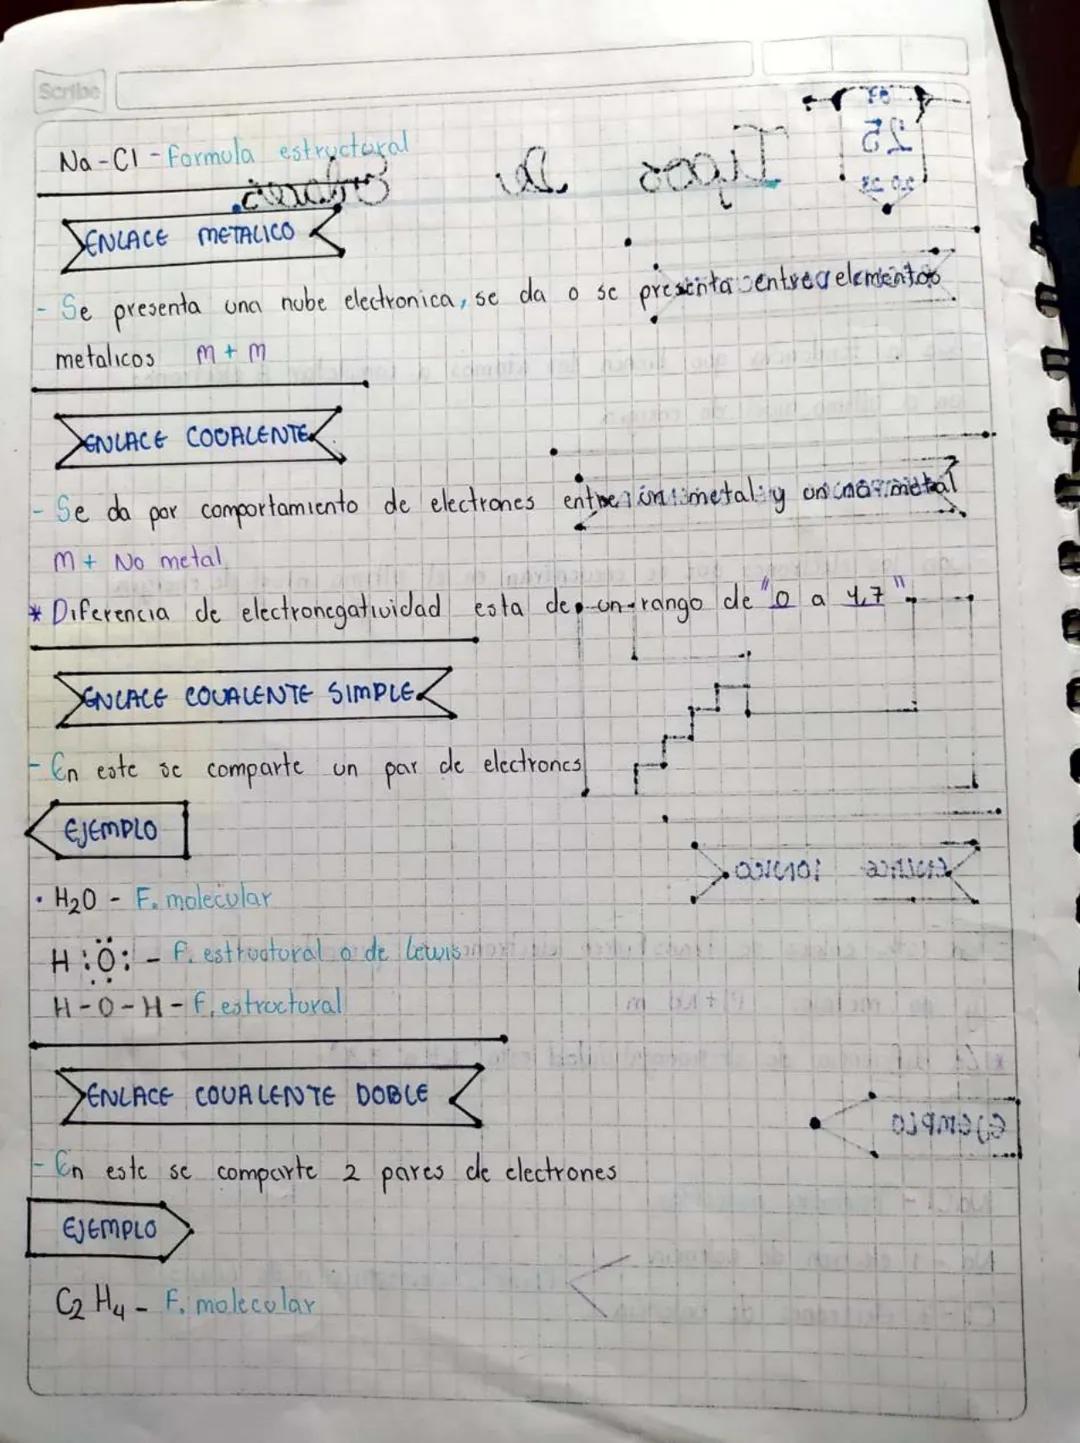 Scribe
Na-Cl - Formula estructural
ENLACE METALICO
- Se presenta una nube electronica, se da o se presenta entre elementos
metalicos m + m
ENLACE COVALENTE
- Se da por comportamiento de electrones entre un metal y un no metal
m + No metal
* Diferencia de electronegatividad esta de un rango de "0 a 1,7"
ENLACE COVALENTE SIMPLE
- En este se comparte un par de electrones
EJEMPLO
· H2O - F. molecular
H:Ö: - F. estructural o de Lewis
H-O-H - F. estructural
ENLACE COVALENTE DOBLE
- En este se comparte 2 pares de electrones
EJEMPLO
C2 H4 - F. molecular